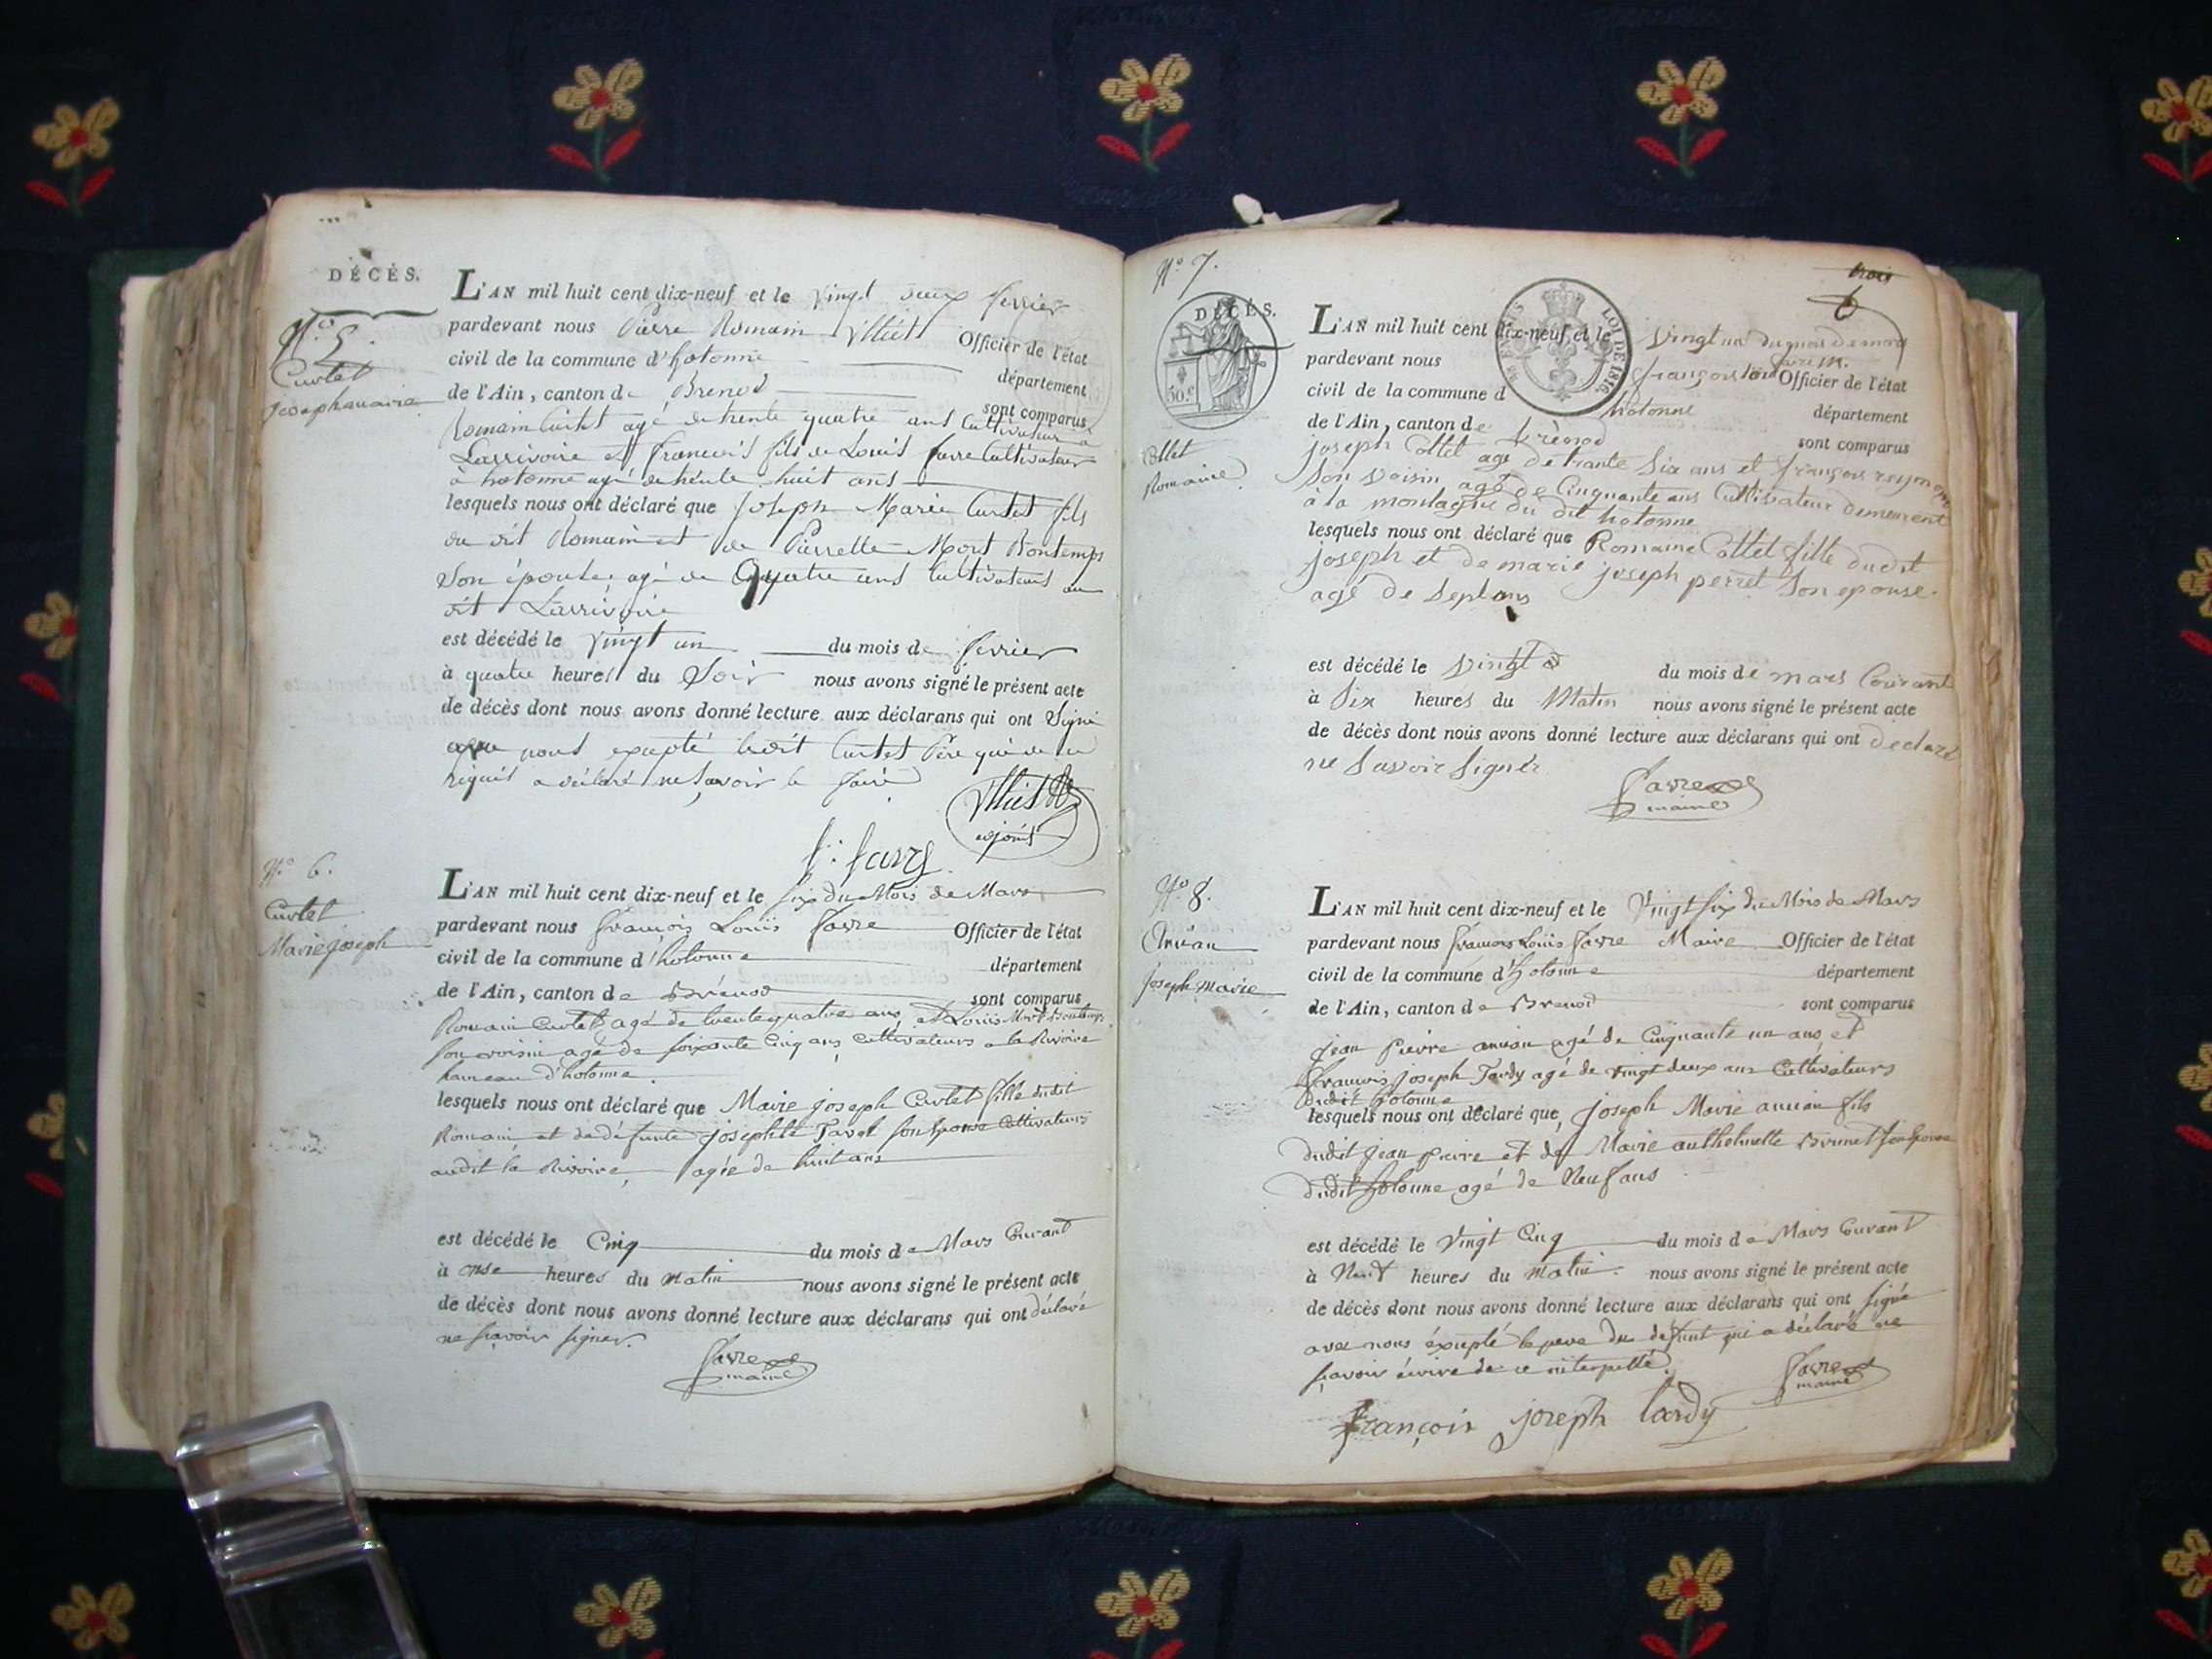 DÉCÉS.
N.o 5.
Curtet
joseph marie
L'AN mil huit cent dix-neuf et le vingt deux fevrier
pardevant nous Pierre Romain Officier de l'état
civil de la commune d'hotonne
département
de l'Ain, canton de Brenod
sont comparus
Romain Curtet agé de trente quatre ans Cultivateur à
Larrivoire et francois fils de Louis favre Cultivateur
à hotonne agé de trente huit ans
lesquels nous ont déclaré que Joseph Marie Curtet fils
du dit Romain et de Pierrette Mort Bontemps
Son épouse, agé de Quatre ans Cultivateurs au
dit Larrivoire
est décédé le vingt un du mois de fevrier
à quatre heures du Soir nous avons signé le présent acte
de décès dont nous avons donné lecture aux déclarans qui ont Signé
avec nous excepté ledit Curtet Père qui de ce
requis a déclaré ne Savoir le faire
adjoint
f.s favre
N.o 6.
Curtet
Marie joseph
L'AN mil huit cent dix-neuf et le six du Mois de Mars
pardevant nous francois Louis favre Officier de l'état
civil de la commune d'hotonne
département
de l'Ain, canton de Brénod
sont comparus
Romain Curtet agé de trente quatre ans, et Louis Mort Bontemps
son voisin agé de soixante Cinq ans, Cultivateurs a la Rivoire
hameau d'hotonne.
lesquels nous ont déclaré que Marie joseph Curtet fille dudit
Romain et de défunte josephte Tavel son Epouse Cultivateurs
audit la Rivoire, agée de huit ans
est décédé le Cinq du mois de Mars Courant
à onse heures du matin nous avons signé le présent acte
de décès dont nous avons donné lecture aux déclarans qui ont déclaré
ne sçavoir signer.
favre
maire
N.o 7.
trois
6
DÉCÉS.
50.c
LOI DE 1816.
Collet
Romaine
L'AN mil huit cent dix-neuf et le vingt un du mois de mars
pardevant nous françois louis favre m. Officier de l'état
civil de la commune d hotonne
département
de l'Ain, canton de brènod
sont comparus
joseph Collet agé de trante Six ans et françois reymond
Son voisin agé de Cinquante ans Cultivateur demeurent
à la montagne du dit hotonne
lesquels nous ont déclaré que Romaine Collet fille dudit
joseph et de marie joseph perret Son epouse.
agé de Sept ans
est décédé le vingt du mois de mars Courant
à Six heures du Matin nous avons signé le présent acte
de décès dont nous avons donné lecture aux déclarans qui ont declaré
ne Savoir Signér
favre
maire
N.o 8.
Anian
joseph marie
L'AN mil huit cent dix-neuf et le Vingt six du Mois de Mars
pardevant nous francois Louis favre Maire Officier de l'état
civil de la commune d'hotonne
département
de l'Ain, canton de Brenod
sont comparus
jean pierre anian agé de Cinquante un ans, et
francois joseph Tardy agé de vingt deux ans Cultivateurs
dudit hotonne
lesquels nous ont déclaré que joseph Marie anian fils
dudit jean pierre et de Marie anthelmette Brunet son Epouse
dudit hotonne agé de Neuf ans
est décédé le Vingt Cinq du mois de Mars Courant
à Neuf heures du matin nous avons signé le présent acte
de décès dont nous avons donné lecture aux déclarans qui ont signé
avec nous éxcepté le pere du défunt qui a déclaré ne
sçavoir écrire de ce interpellé.
favre
maire
françois joseph tardy